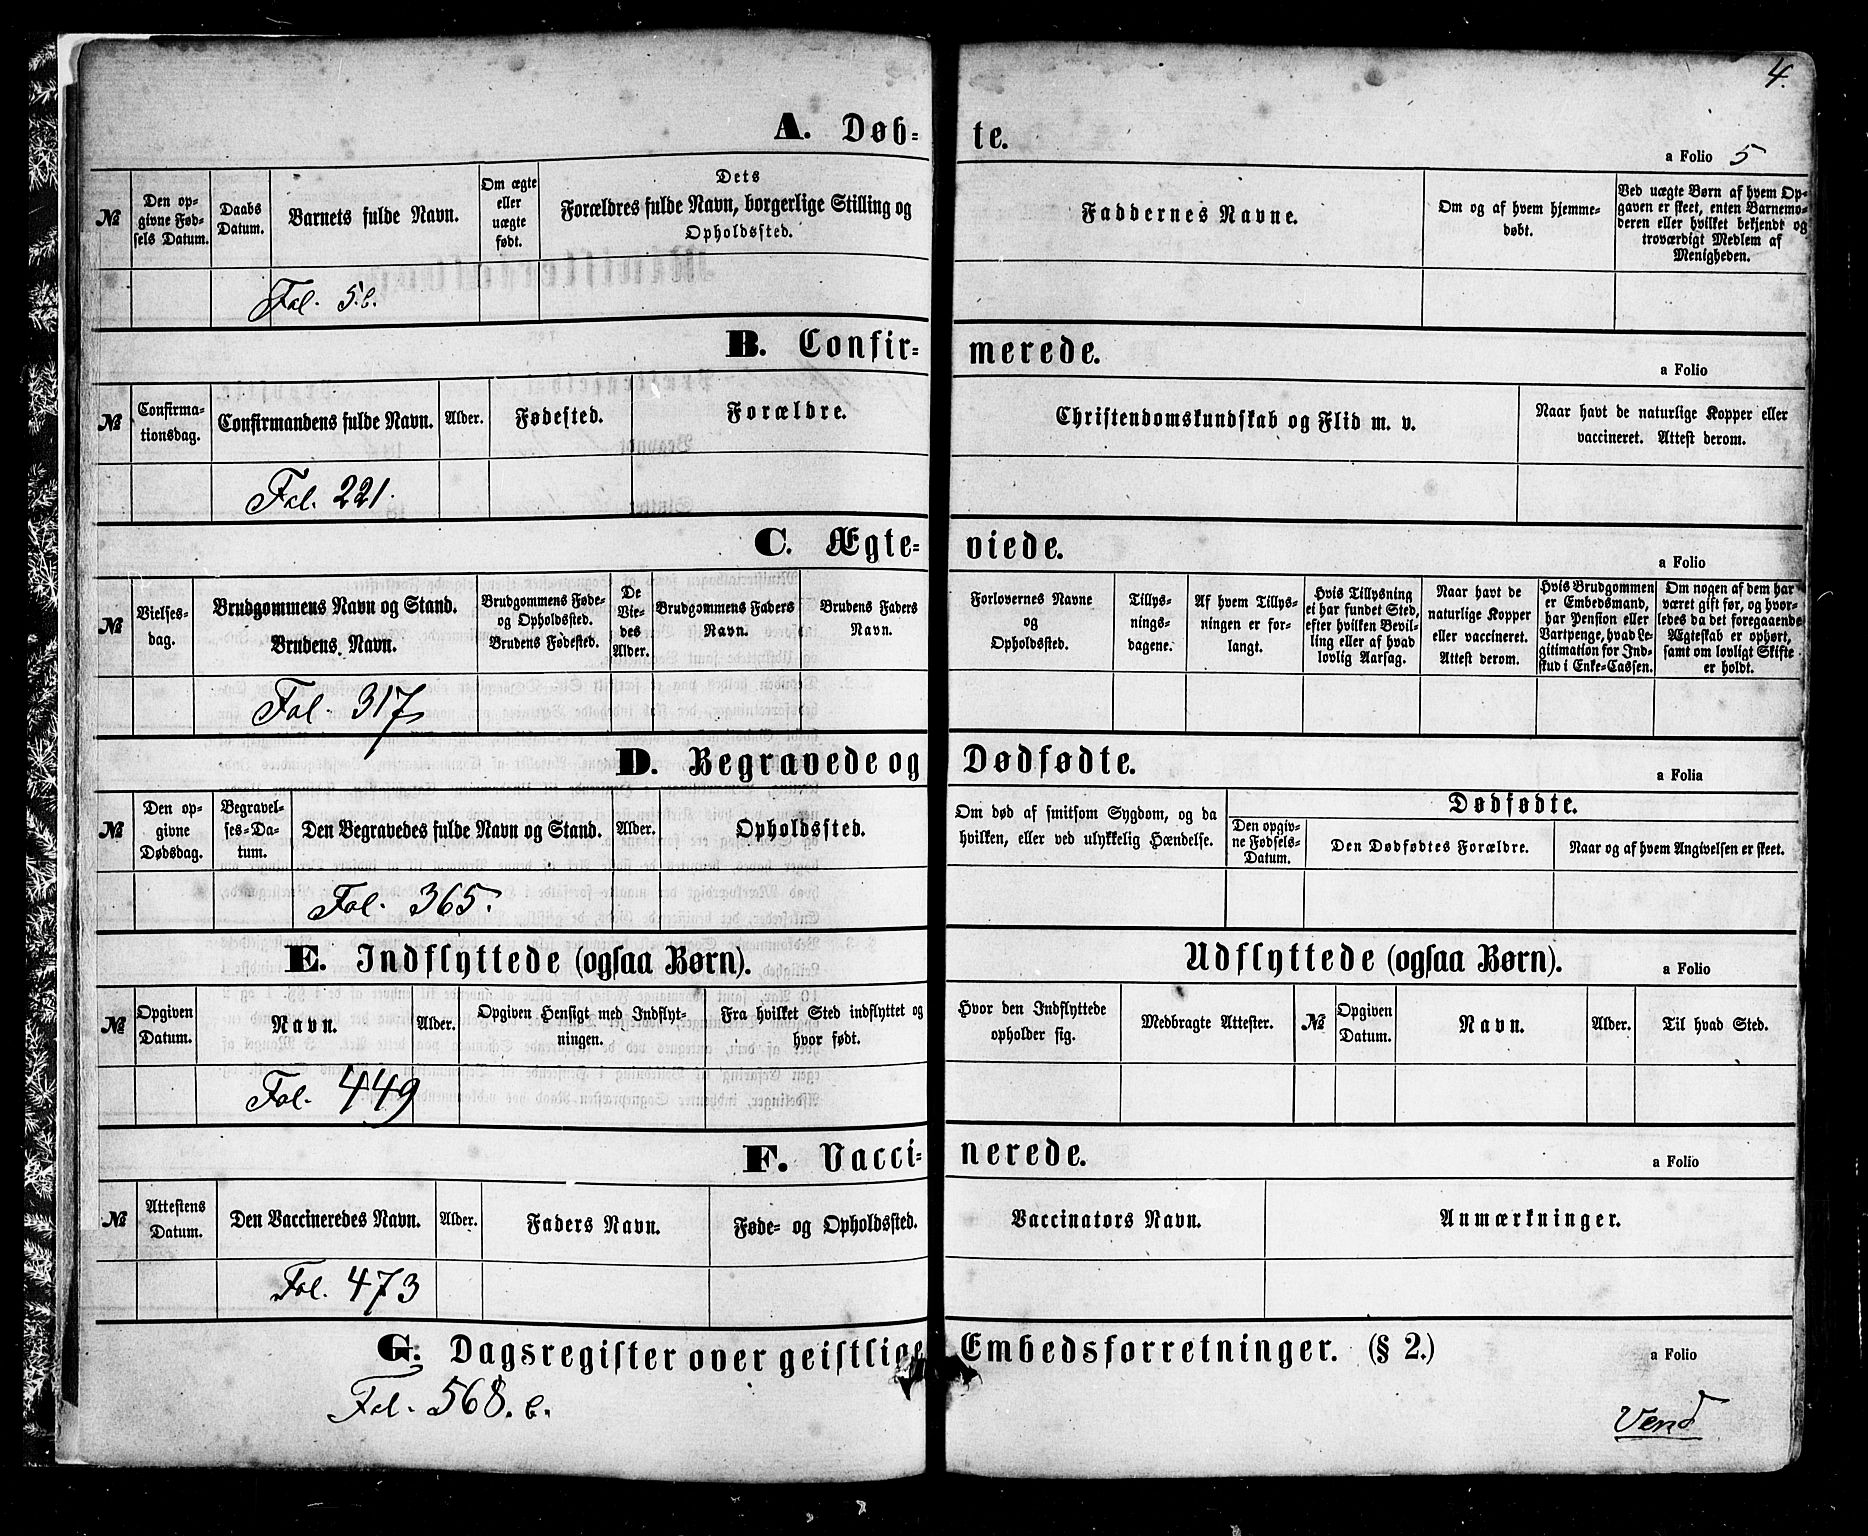 4.
A. Døbte.
a Folio 5
№
Den opgivne Fødsels Datum.
Daabs Datum.
Barnets fulde Navn.
Om ægte eller uægte født.
Dets Forældres fulde Navn, borgerlige Stilling og Opholdssted.
Faddernes Navne.
Om og af hvem hjemmedøbt.
Ved uægte Børn af hvem Opgaven er skeet, enten Barnemoderen eller hvilket bekjendt og troværdigt Medlem af Menigheden.
Fol. 5.b.
B. Confirmerede.
a Folio
№
Confirmationsdag.
Confirmandens fulde Navn.
Alder.
Fødested.
Forældre.
Christendomskundskab og Flid m. v.
Naar havt de naturlige Kopper eller vaccineret. Attest derom.
Fol. 221.
C. Ægteviede.
a Folio
№
Vielsesdag.
Brudgommens Navn og Stand. Brudens Navn.
Brudgommens Føde- og Opholdssted. Brudens Fødested.
De Viedes Alder.
Brudgommens Faders Navn.
Brudens Faders Navn.
Forlovernes Navne og Opholdssted.
Tillysningsdagene.
Af hvem Tillysningen er forlangt.
Hvis Tillysning ei har fundet Sted, efter hvilken Bevilling eller af hvad lovlig Aarsag.
Naar havt de naturlige Kopper eller vaccineret. Attest derom.
Hvis Brudgommen er Embedsmand, har Pension eller Vartpenge, hvad Legitimation for Indskud i Enke-Cassen.
Om nogen af dem har været gift før, og hvorledes da det foregaaende Ægteskab er ophørt, samt om lovligt Skifte er holdt.
Fol. 317
D. Begravede og Dødfødte.
a Folia
№
Den opgivne Dødsdag.
Begravelses-Datum.
Den Begravedes fulde Navn og Stand.
Alder.
Opholdssted.
Om død af smitsom Sygdom, og da hvilken, eller ved ulykkelig Hændelse.
Dødfødte.
Den opgivne Fødsels-Datum.
Den Dødfødtes Forældre.
Naar og af hvem Angivelsen er skeet.
Fol. 365.
E. Indflyttede (ogsaa Børn).
Udflyttede (ogsaa Børn).
a Folio
№
Opgiven Datum.
Navn.
Alder.
Opgiven Hensigt med Indflytningen.
Fra hvilket Sted indflyttet og hvor født.
Hvor den Indflyttede opholder sig.
Medbragte Attester.
№
Opgiven Datum.
Navn.
Alder.
Til hvad Sted.
Fol. 449
F. Vaccinerede.
a Folio
№
Attestens Datum.
Den Vaccineredes Navn.
Alder.
Faders Navn.
Føde- og Opholdssted.
Vaccinators Navn.
Anmærkninger.
Fol. 473
G. Dagsregister over geistlige Embedsforretninger. (§ 2.)
a Folio
Fol. 568.b.
Vend